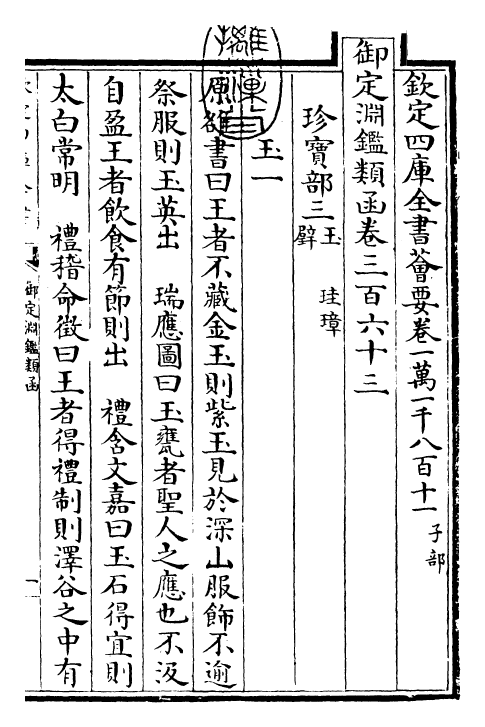 欽定四庫全書薈要卷一萬一千八百十一 子部
御定淵鑑類函卷三百六十三
珍寶部三 玉 璧 珪璋
玉一
原雒書曰王者不藏金玉則紫玉見於深山服飾不逾
祭服則玉英出 瑞應圖曰玉甕者聖人之應也不汲
自盈王者飲食有節則出 禮含文嘉曰玉石得宜則
太白常明 禮稽命徵曰王者得禮制則澤谷之中有
御定淵鑑類函
一